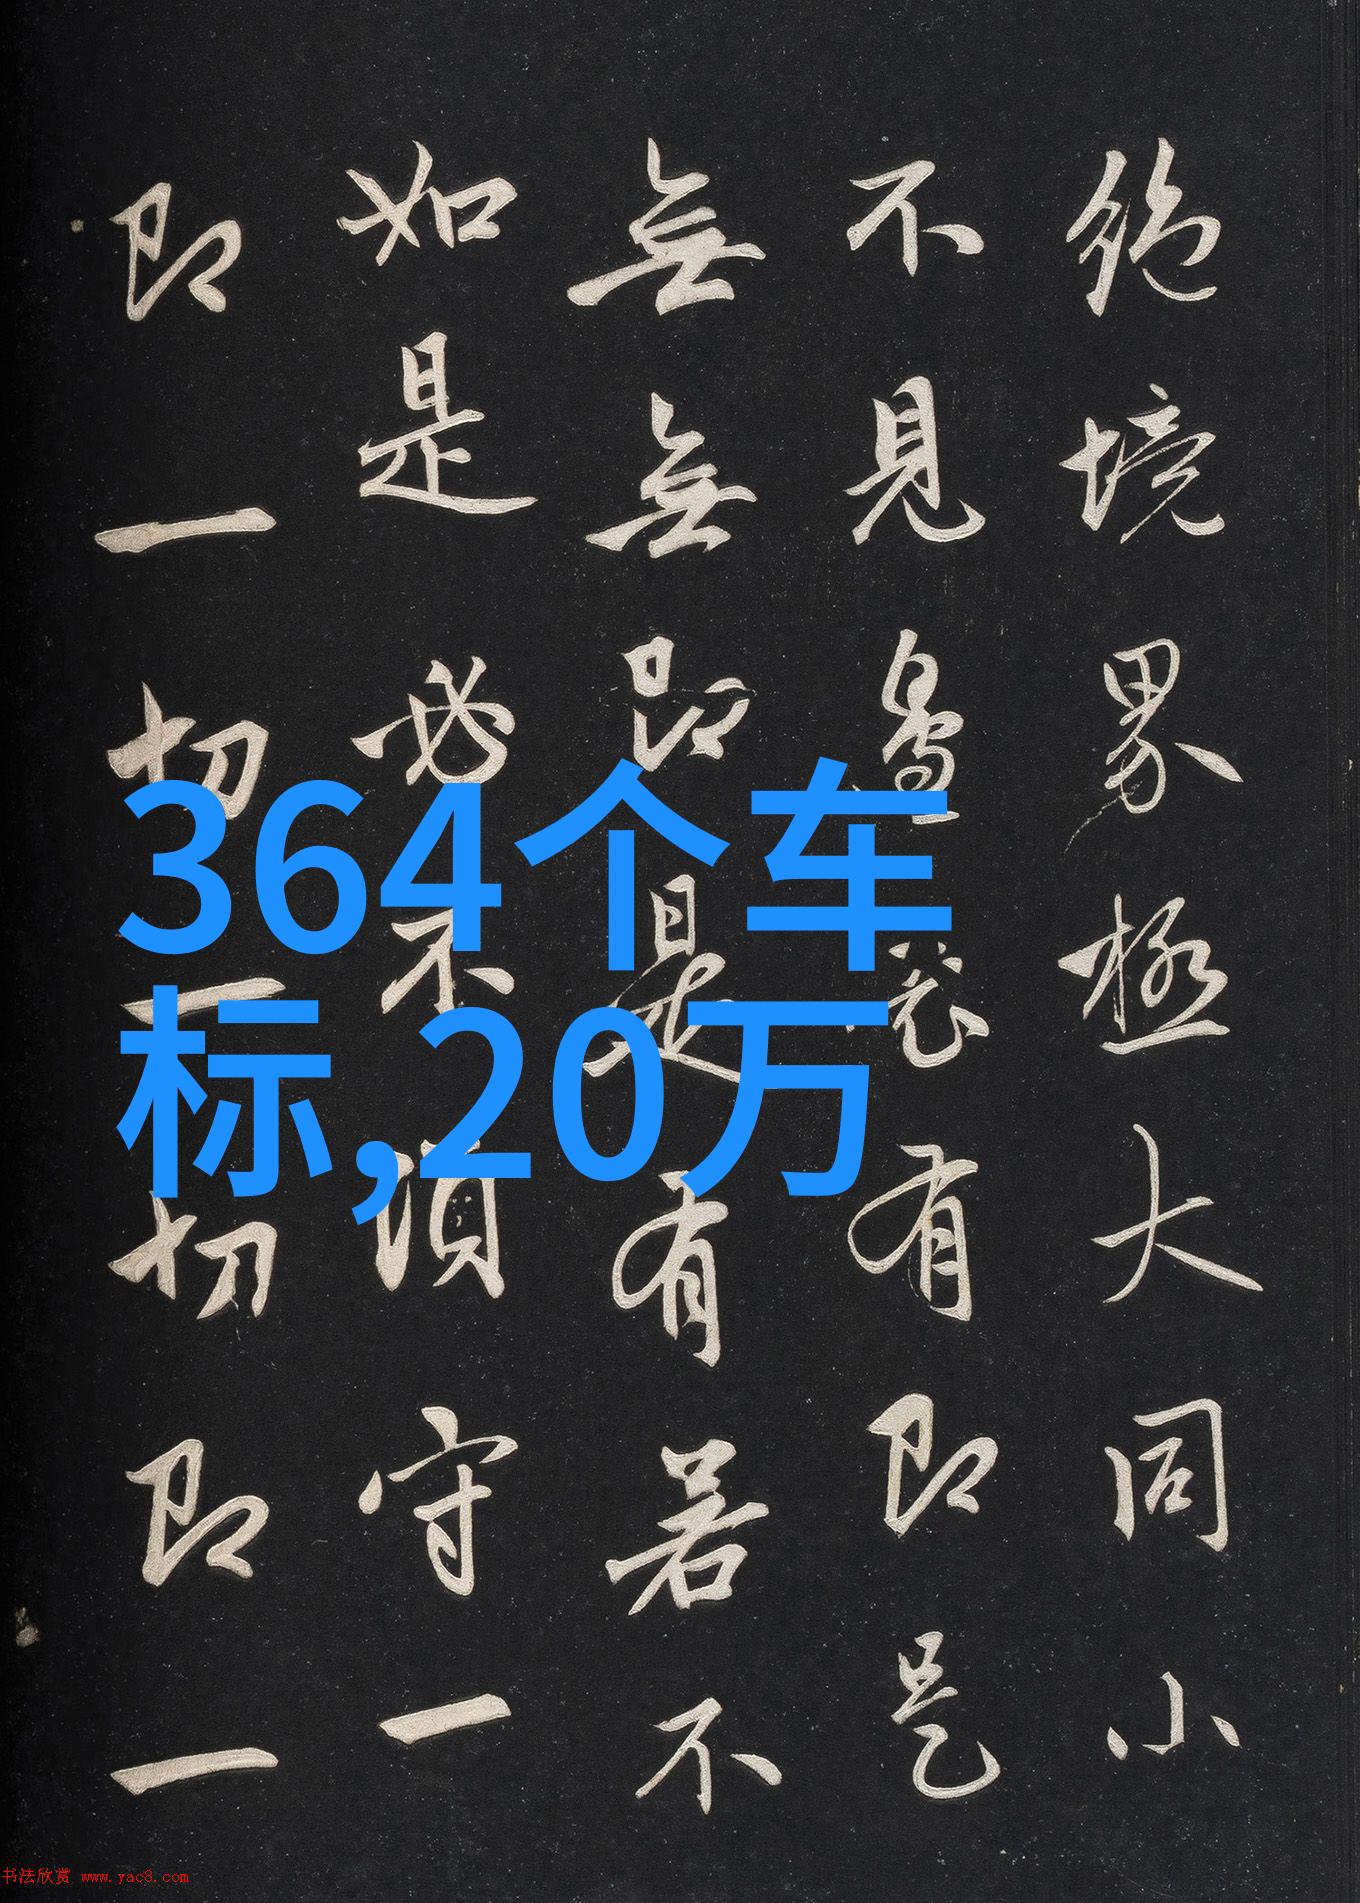 絶境界極大同小
不見邊表有即是
無無即是有若不
如是必不須守一
即一切一切即一
364个车
标,20万
书法欣赏 www.yac8.com